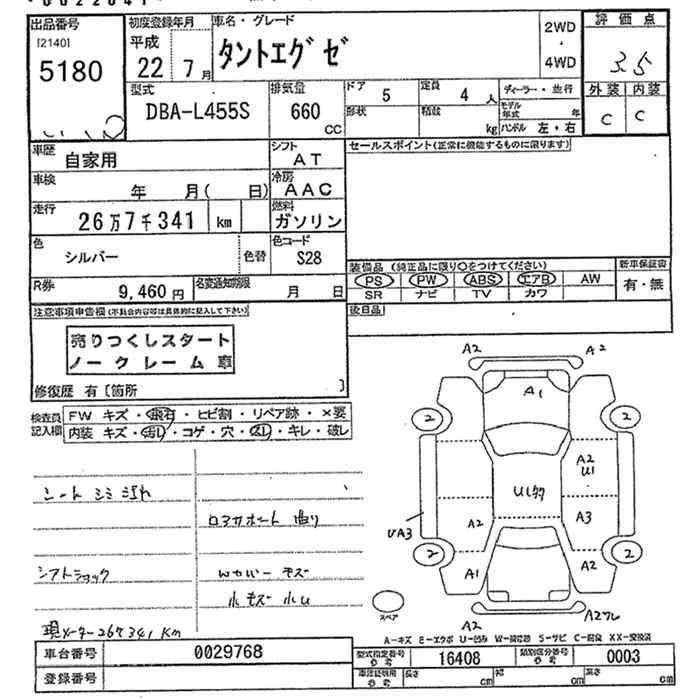 出品番号
[2140]
5180
初度登録年月
平成
22 7月
車名・グレード
タントエグゼ
2WD
・
4WD
評価点
3.5
外装 内装
C C
型式
DBA-L455S
排気量
660
CC
ドア
5
定員
4 人
形状
積載
kg
ディーラー・並行
モデル年式 年
ハンドル 左・右
車歴
自家用
シフト
AT
車検
年 月( 日)
冷房
AAC
走行
26万7千341 km
燃料
ガソリン
色
シルバー
色替
色コード
S28
R券
9,460 円
名変通知期限
月 日
セールスポイント(正常に機能するものに限ります)
装備品 (純正品に限り○をつけてください)
新車保証書
PS PW ABS エアB AW
有・無
SR ナビ TV カワ
後日品
注意事項申告欄(不具合内容等は具体的に記入して下さい)
売りつくしスタート
ノークレーム車
修復歴 有 [箇所 ]
検査員
記入欄
FW キズ・飛石・ヒビ割・リペア跡・×要
内装 キズ・汚レ・コゲ・穴・スレ・キレ・破レ
シート シミ 汚れ
ロアサポート 曲り
シフトショック
Wカバー キズ
現メーター267341Km
A2 A2
A1
2 2
A2
U1
A2 A3
UA3
A1 A2
2 2
スペア
A2
A-キズ E-エクボ U-凹み W-補修跡 S-サビ C-腐食 XX-交換済
車台番号
0029768
登録番号
型式指定番号
参考
16408
類別区分番号
参考
0003
車庫証明用
参考
長さ cm
巾 cm
高さ cm